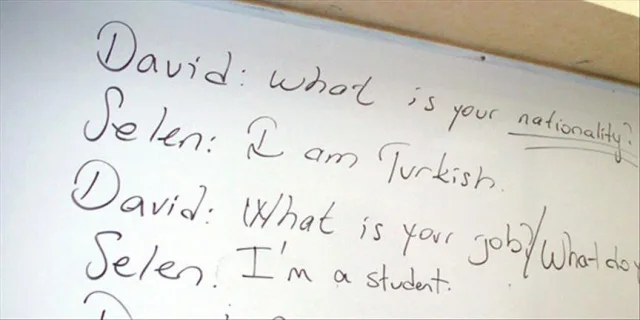 David: What is your nationality?
Selen: I am Turkish.
David: What is your job?/What do
Selen: I'm a student.